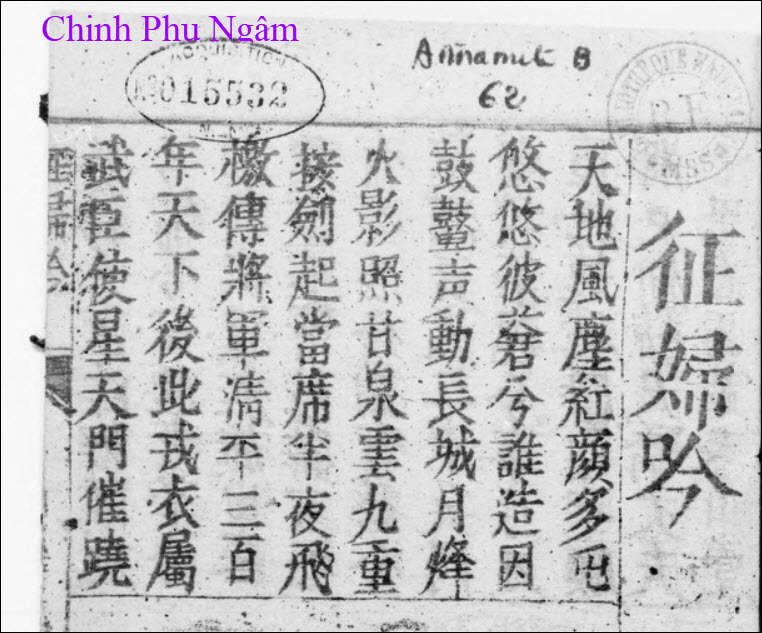 Chinh Phu Ngâm
ACQUISITION
No 015532
Annamite B
62
R F
MSS
征婦吟
天地風塵紅顏多屯
悠悠彼蒼兮誰造因
鼓鼙声動長城月烽
火影照甘泉雲九重
按劍起當席半夜飛
檄傳將軍清平三百
年天下後此戎衣屬
武臣使星天門催蹺